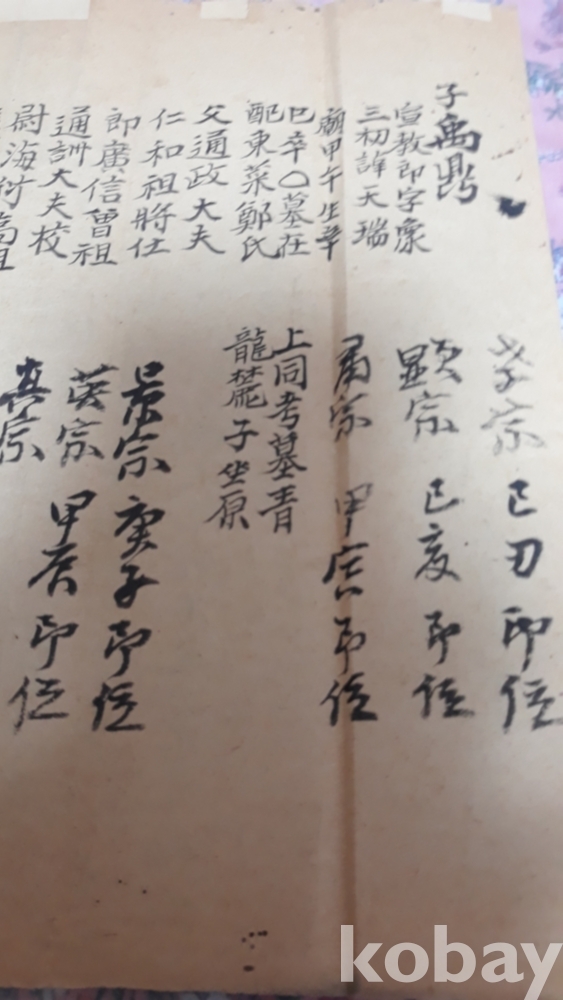 子禹鼎
宣教郎字象
三初諱天瑞
肅廟甲午生辛
巳卒乙墓在
配東菜鄭氏
父通政大夫
仁和祖將仕
郎廣信曾祖
通訓大夫校
尉海
上同考墓青
龍麓子坐原
孝宗 己丑 即位
顯宗 己亥 即位
肅宗 甲寅 即位
景宗 庚子 即位
英宗 甲辰 即位
真宗
kobay